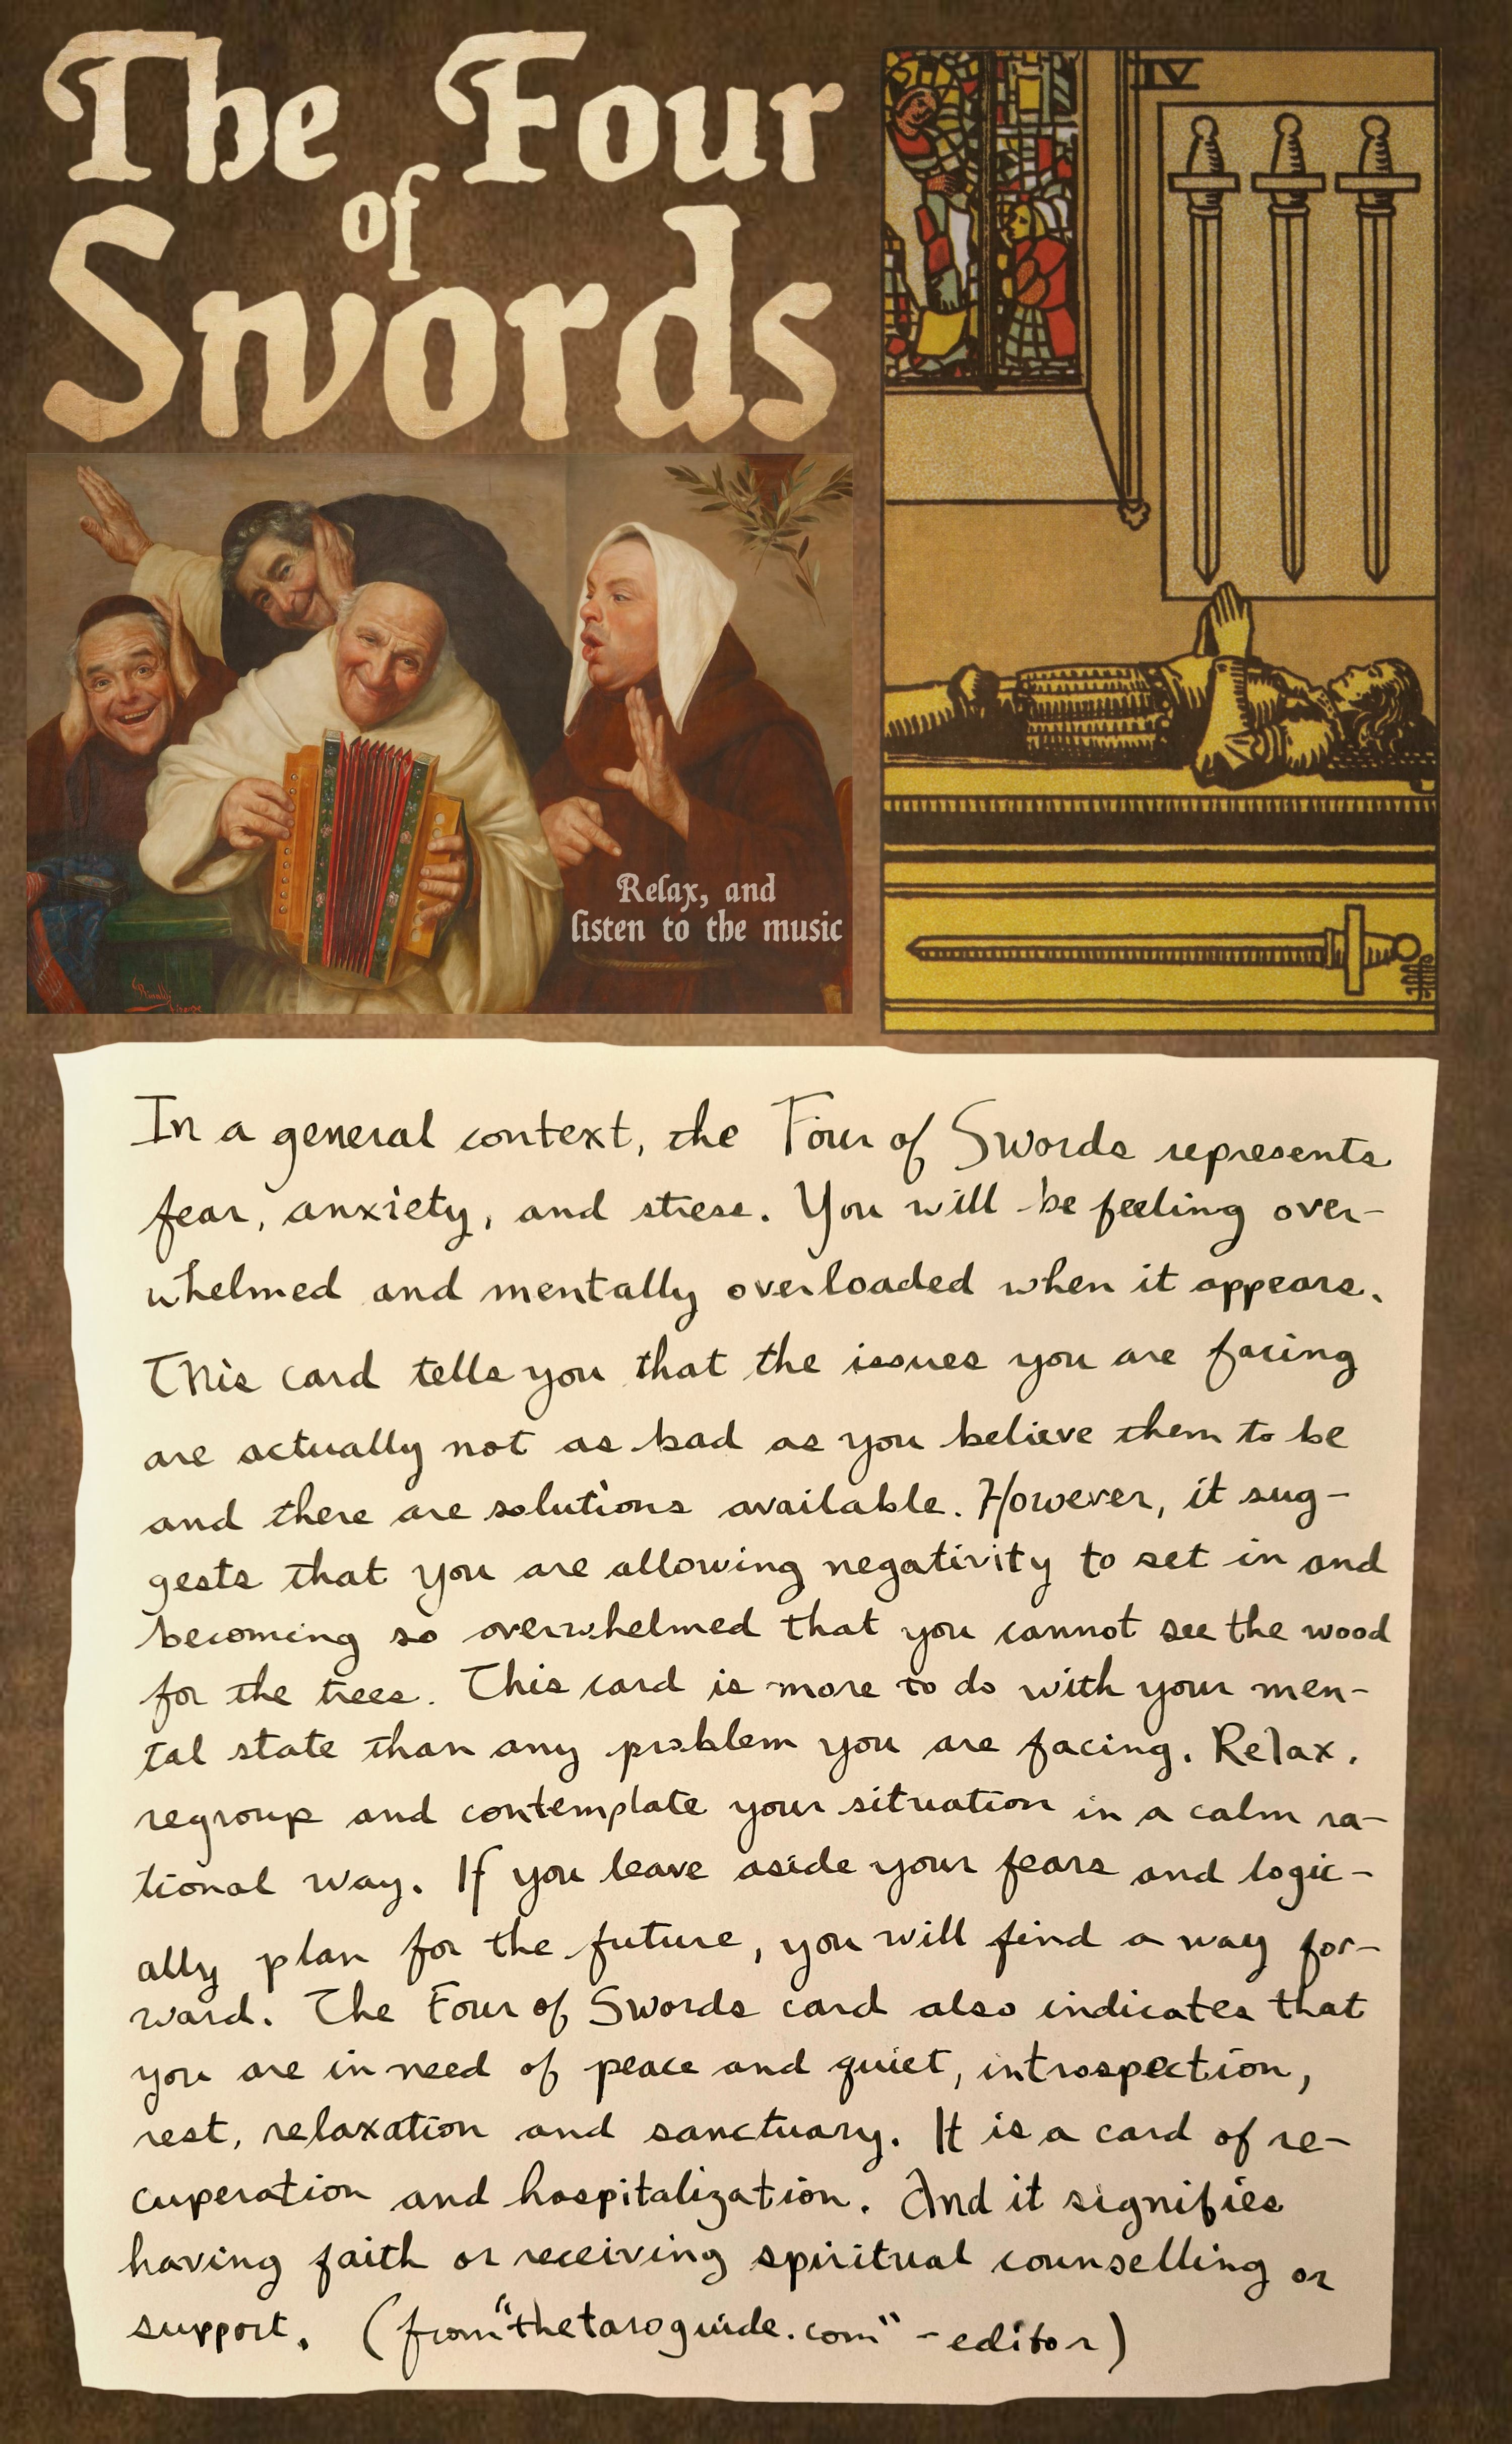 The Four
of
Swords
IV
Relax, and
listen to the music
In a general context, the Four of Swords represents
fear, anxiety, and stress. You will be feeling over-
whelmed and mentally overloaded when it appears.
This card tells you that the issues you are facing
are actually not as bad as you believe them to be
and there are solutions available. However, it sug-
gests that you are allowing negativity to set in and
becoming so overwhelmed that you cannot see the wood
for the trees. This card is more to do with your men-
tal state than any problem you are facing. Relax,
regroup and contemplate your situation in a calm ra-
tional way. If you leave aside your fears and logic-
ally plan for the future, you will find a way for-
ward. The Four of Swords card also indicates that
you are in need of peace and quiet, introspection,
rest, relaxation and sanctuary. It is a card of re-
cuperation and hospitalization. And it signifies
having faith or receiving spiritual counselling or
support. (from "thetaroguide.com" - editor)